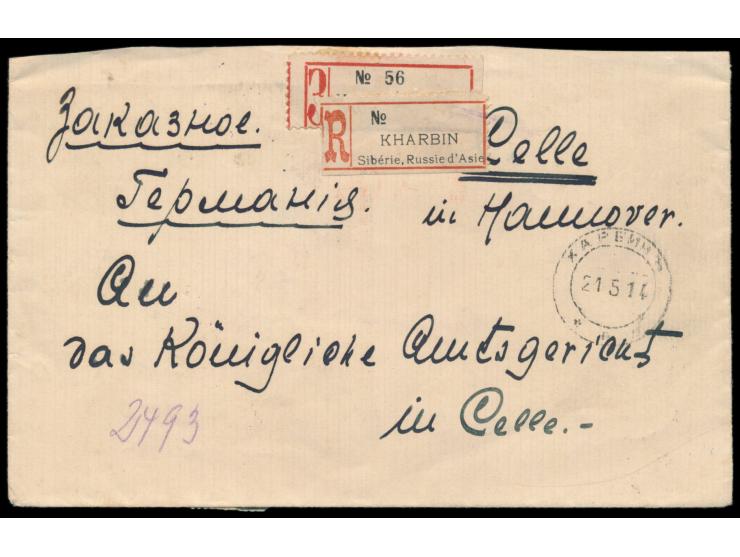 № 56
R
№
KHARBIN
Sibérie, Russie d'Asie
Заказное.
Celle
Германія.
in Hannover.
ХАРБИНЪ
21 5 14
An
das Königliche Amtsgericht
in Celle.-
2493